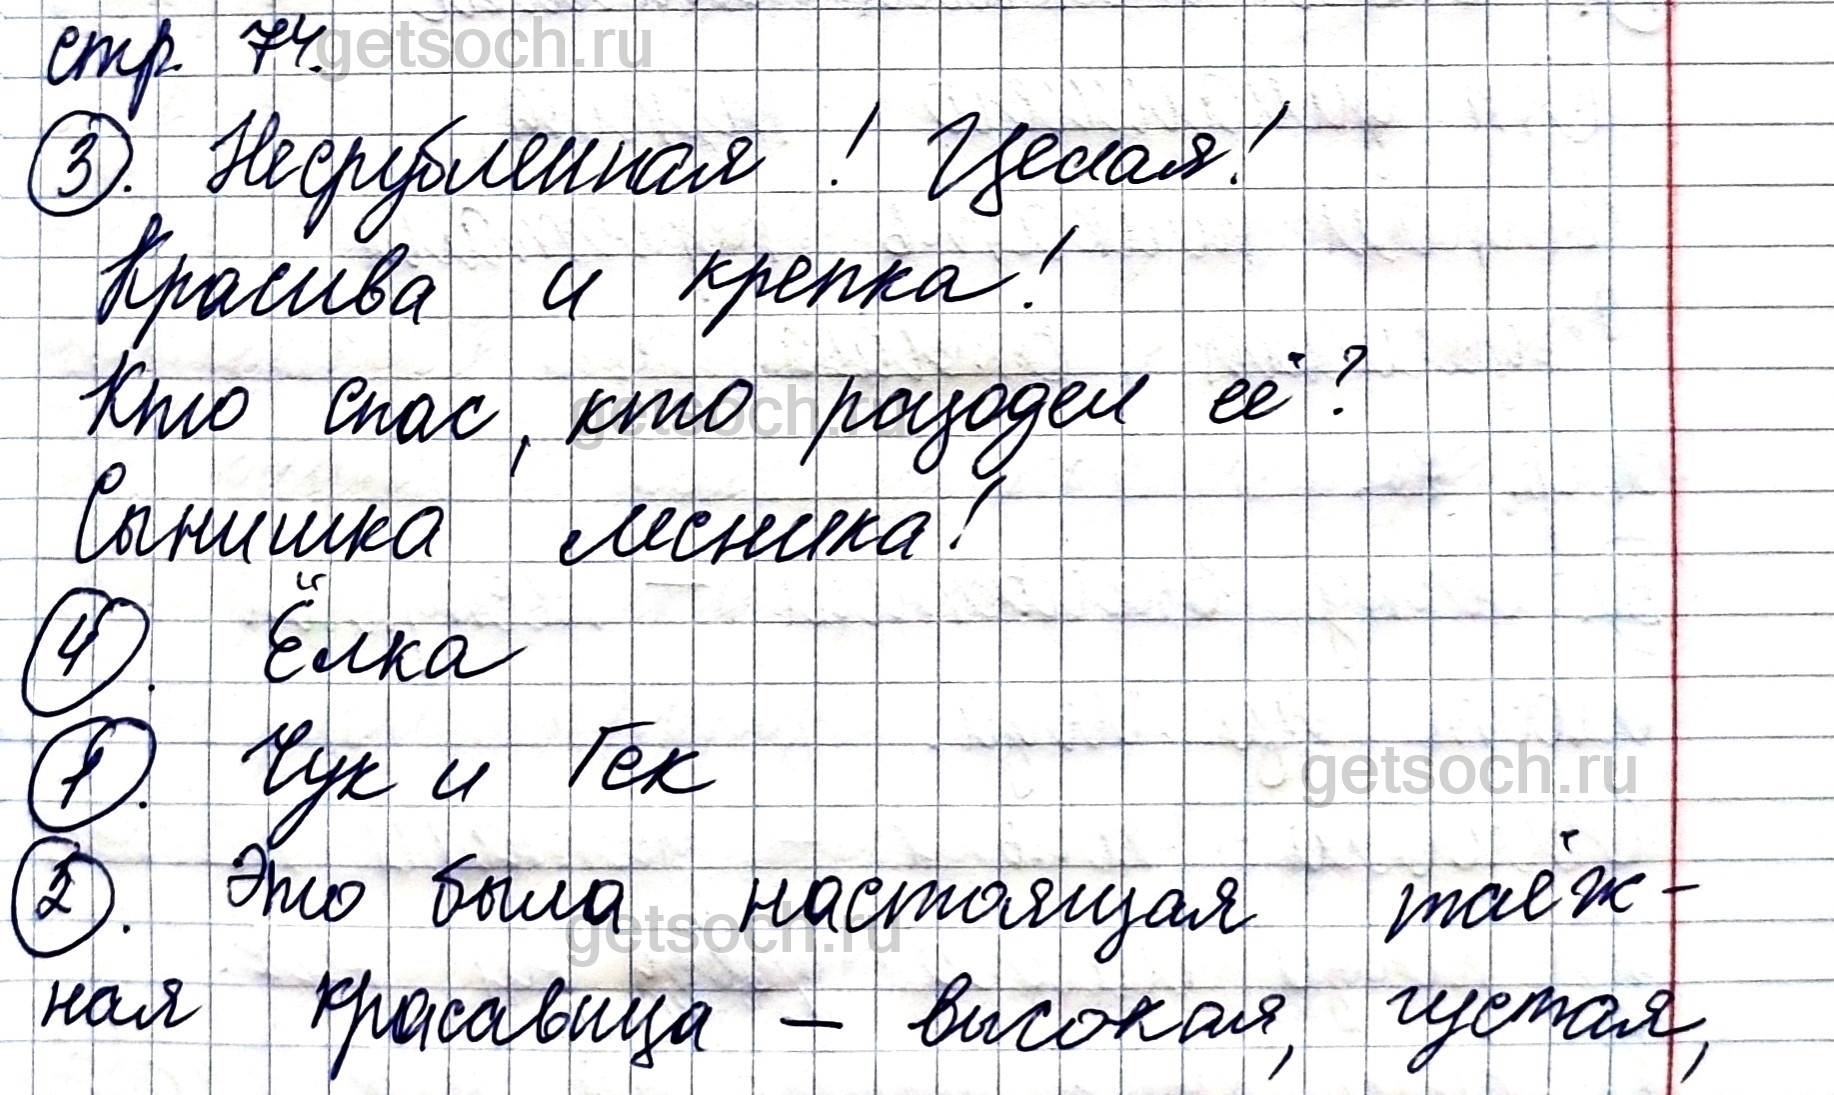 стр. 74.
getsoch.ru
3. Несрубленная! Целая!
Красива и крепка!
Кто спас, кто разодел её?
getsoch.ru
Сынишка лесника!
4. Ёлка
1. Чук и Гек
getsoch.ru
2. Это была настоящая таёж-
getsoch.ru
ная красавица – высокая, густая,